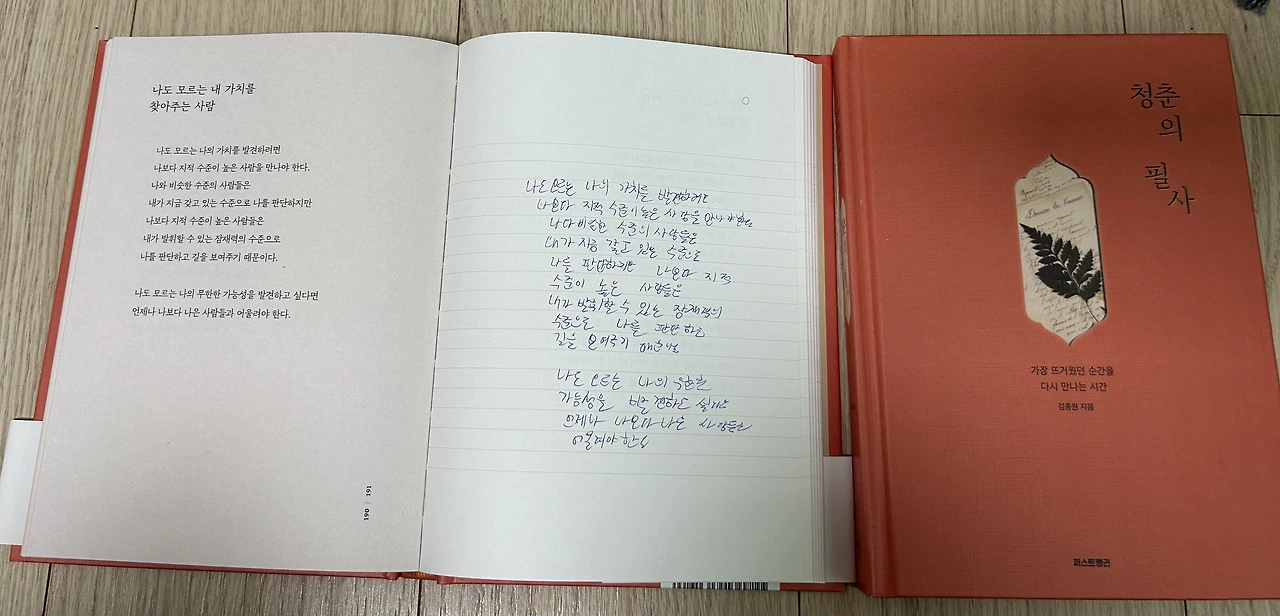 나도 모르는 내 가치를
찾아주는 사람
나도 모르는 나의 가치를 발견하려면
나보다 지적 수준이 높은 사람을 만나야 한다.
나와 비슷한 수준의 사람들은
내가 지금 갖고 있는 수준으로 나를 판단하지만
나보다 지적 수준이 높은 사람들은
내가 발휘할 수 있는 잠재력의 수준으로
나를 판단하고 길을 보여주기 때문이다.
나도 모르는 나의 무한한 가능성을 발견하고 싶다면
언제나 나보다 나은 사람들과 어울려야 한다.
190 | 191
나도 모르는 나의 가치를
나보다 지적 수준이 높은 사람을 만나야
비슷한 수준의 사람들은
내가 지금 갖고 있는 수준으로
나를 판단하지만 나보다 지적
수준이 높은 사람들은
내가 발휘할 수 있는
수준으로 나를
길을 보여주기
나도 모르는 나의 무한한
가능성을 발견하고 싶다면
언제나 나보다 나은 사람들과
어울려야
청춘
의
필
사
가장 뜨거웠던 순간을
다시 만나는 시간
김종원 지음
퍼스트펭귄